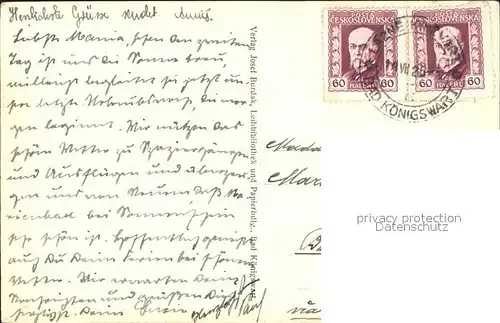 Herzlichste Grüsse sendet
Liebste Mama, schon den zweiten
Tag ist uns die Sonne treu,
vielleicht begleitet sie jetzt un-
sere letzte Urlaubswoche, die mor-
gen beginnt. Wir nützen das
schöne Wetter zu Spaziergängen
und Ausflügen und überzeu-
gen uns von Neuem, daß Ma-
rienbad bei Sonnenschein
sehr schön ist. Hoffentlich genießt
auch Du Deine Ferien bei schönem
Wetter. Wir erwarten Deine
Nachrichten und grüßen Dich
herzlichst. Deine
Verlag Josef Bardak, Leihbibliothek und Papierhdlg., Bad Königswart
ČESKOSLOVENSKÁ
60 HALÉŘŮ 60
ČESKOSLOVENSKÁ
60 HALÉŘŮ 60
BAD KÖNIGSWART
privacy protection
Datenschutz